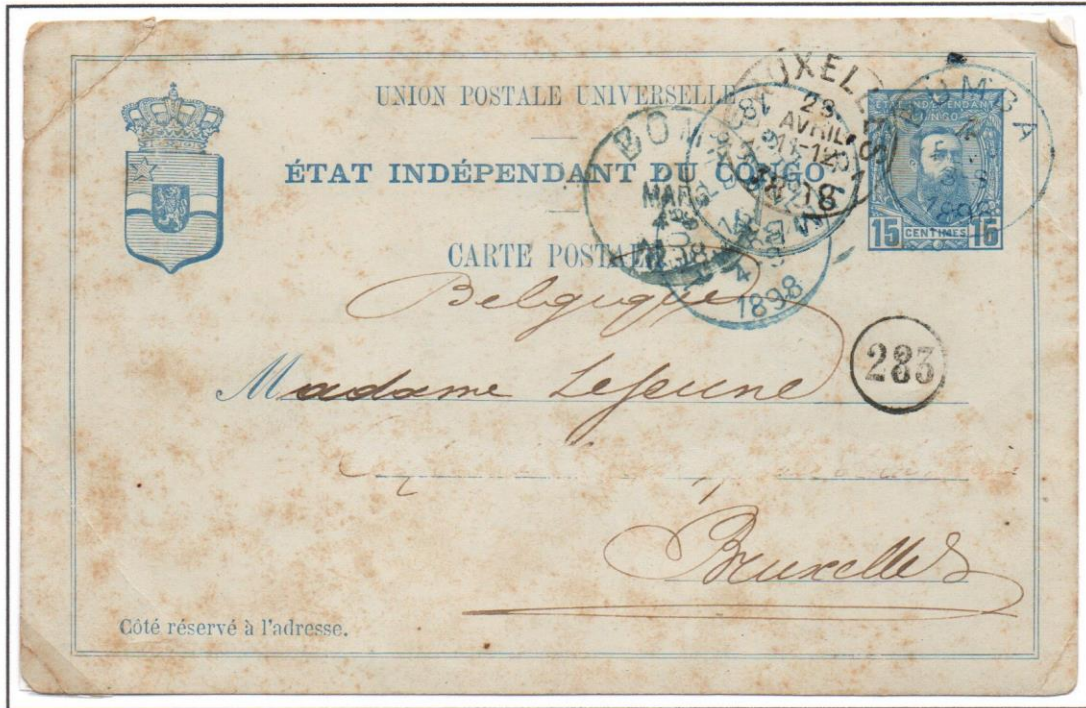 UNION POSTALE UNIVERSELLE
ÉTAT INDÉPENDANT DU CONGO
CARTE POSTALE
ÉTAT INDÉPENDANT DU CONGO
15 CENTIMES 15
BRUXELLES
23
AVRIL
11-12
1898
BOMA
MARS
1898
UMBA
1898
4
1898
Belgique
Madame Lejeune
283
Bruxelles
Côté réservé à l'adresse.